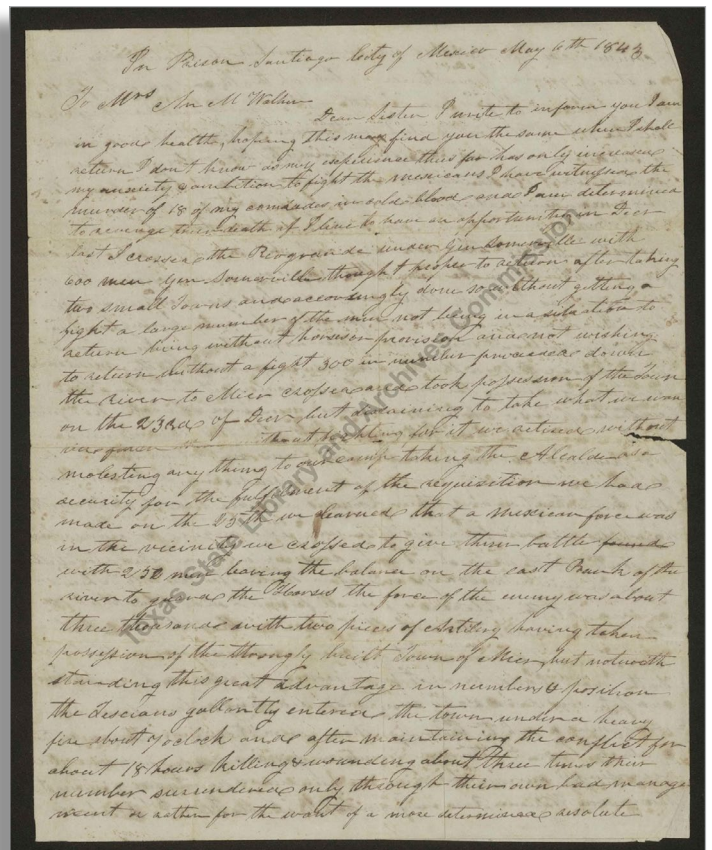 In Prison Santiago City of Mexico May 6th 1843
To Mrs An M Walker
Dear Sister I write to inform you I am
in good health, hoping this may find you the same when I shall
return I don't know as my experience thus far has only increased
my anxiety & ambition to fight the mexicans I have witnessed the
murder of 18 of my comrades in cold blood and I am determined
to revenge their death if I live to have an opportunity in Decr
last I crossed the Riogrande under Gen Somerville with
600 men Gen Somerville thought proper to return after taking
two small Towns and accordingly done so without getting a
fight a large number of the men not being in a situation to
return being without horses or provision and not wishing
to return without a fight 300 in number proceeded down
the river to Mier crossed and took possession of the Town
on the 23rd of Decr but disdaining to take what we won
was given without fighting for it we retired without
molesting any thing to our camp taking the Alcalde as a
security for the fulfilment of the requisition we had
made on the 25th we learned that a mexican force was
in the vicinity we crossed to give them battle found
with 250 men leaving the balance on the east Bank of the
river to guard the Horses the force of the enemy was about
three thousand with two pieces of Artilery having taken
possession of the strongly built Town of Mier but notwith
standing this great advantage in numbers & position
the Texians gallantly entered the town under a heavy
fire about 7 oclock and after maintaining the conflict for
about 18 hours killing & wounding about three times their
number surrendered only through their own bad manage
ment or rather for the want of a more determined resolute
Texas State Library and Archives Commission